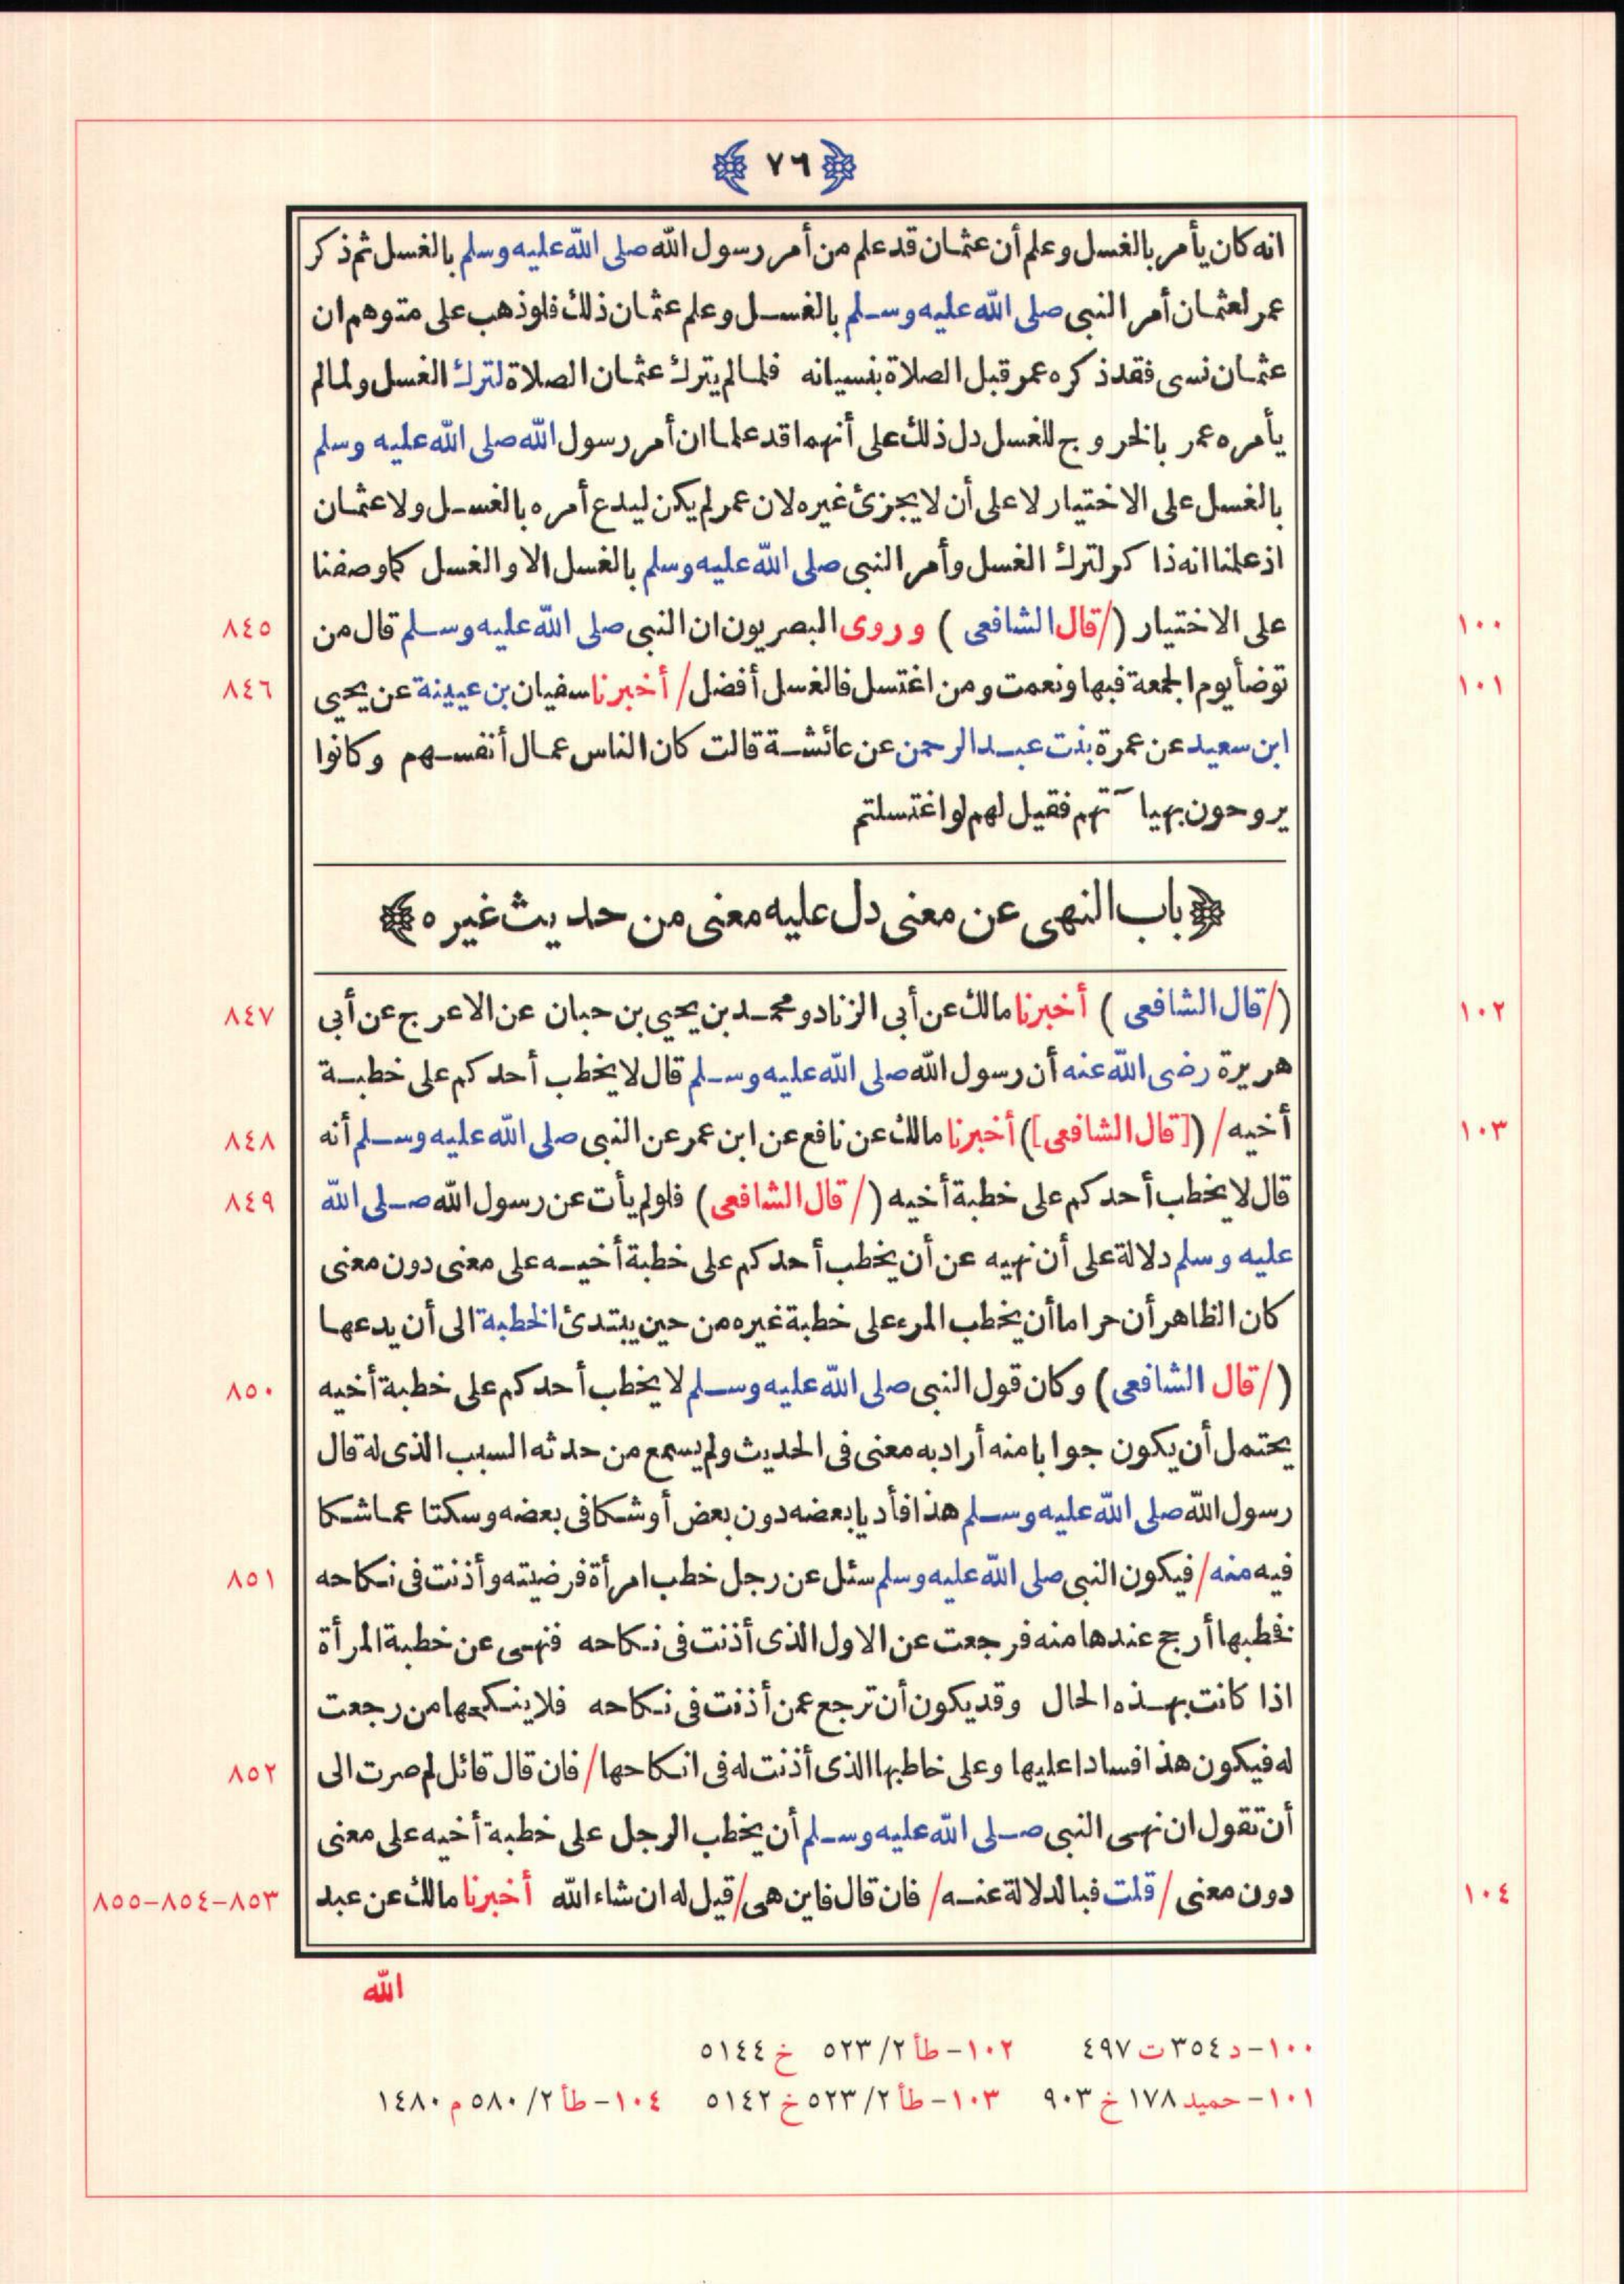 ﴿ ٧٦ ﴾
انه كان يأمر بالغسل وعلم أن عثمان قد علم من أمر رسول الله صلى الله عليه وسلم بالغسل ثم ذكر
عمر لعثمان أمر النبى صلى الله عليه وسلم بالغسل وعلم عثمان ذلك فلو ذهب على متوهم ان
عثمان نسى فقد ذكره عمر قبل الصلاة بنسيانه فلما لم يترك عثمان الصلاة لترك الغسل ولما لم
يأمره عمر بالخروج للغسل دل ذلك على أنهما قد علما ان أمر رسول الله صلى الله عليه وسلم
بالغسل على الاختيار لا على أن لا يجزئ غيره لان عمر لم يكن ليدع أمره بالغسل ولا عثمان
اذ علمنا انه ذا كر لترك الغسل وأمر النبى صلى الله عليه وسلم بالغسل الا والغسل كما وصفنا
١٠٠ على الاختيار (/قال الشافعى ) وروى البصريون ان النبى صلى الله عليه وسلم قال من ٨٤٥
١٠١ توضأ يوم الجمعة فبها ونعمت ومن اغتسل فالغسل أفضل/ أخبرنا سفيان بن عيينة عن يحيى ٨٤٦
ابن سعيد عن عمرة بنت عبد الرحمن عن عائشة قالت كان الناس عمال أنفسهم وكانوا
يروحون بهيآتهم فقيل لهم لو اغتسلتم
﴿ باب النهى عن معنى دل عليه معنى من حديث غيره ﴾
١٠٢ (/قال الشافعى ) أخبرنا مالك عن أبى الزناد ومحمد بن يحيى بن حبان عن الاعرج عن أبى ٨٤٧
هريرة رضى الله عنه أن رسول الله صلى الله عليه وسلم قال لا يخطب أحدكم على خطبة
١٠٣ أخيه/ ([قال الشافعى]) أخبرنا مالك عن نافع عن ابن عمر عن النبى صلى الله عليه وسلم أنه ٨٤٨
قال لا يخطب أحدكم على خطبة أخيه (/ قال الشافعى) فلو لم يأت عن رسول الله صلى الله ٨٤٩
عليه وسلم دلالة على أن نهيه عن أن يخطب أحدكم على خطبة أخيه على معنى دون معنى
كان الظاهر أن حراما أن يخطب المرء على خطبة غيره من حين يبتدئ الخطبة الى أن يدعها
(/قال الشافعى) وكان قول النبى صلى الله عليه وسلم لا يخطب أحدكم على خطبة أخيه ٨٥٠
يحتمل أن يكون جوابا منه أراد به معنى فى الحديث ولم يسمع من حدثه السبب الذى له قال
رسول الله صلى الله عليه وسلم هذا فأديا بعضه دون بعض أو شكا فى بعضه وسكتا عما شكا
فيه منه/ فيكون النبى صلى الله عليه وسلم سئل عن رجل خطب امرأة فرضيته وأذنت فى نكاحه ٨٥١
فخطبها أرجح عندها منه فرجعت عن الاول الذى أذنت فى نكاحه فنهى عن خطبة المرأة
اذا كانت بهذه الحال وقد يكون أن ترجع عمن أذنت فى نكاحه فلا ينكحها من رجعت
له فيكون هذا فسادا عليها وعلى خاطبها الذى أذنت له فى انكاحها/ فان قال قائل لم صرت الى ٨٥٢
أن تقول ان نهى النبى صلى الله عليه وسلم أن يخطب الرجل على خطبة أخيه على معنى
١٠٤ دون معنى / قلت فبالدلالة عنه/ فان قال فاين هى/ قيل له ان شاء الله أخبرنا مالك عن عبد ٨٥٣-٨٥٤-٨٥٥
الله
١٠٠- د ٣٥٤ ت ٤٩٧ ١٠٢- طأ ٢/ ٥٢٣ خ ٥١٤٤
١٠١- حميد ١٧٨ خ ٩٠٣ ١٠٣- طأ ٢/ ٥٢٣ خ ٥١٤٢ ١٠٤- طأ ٢/ ٥٨٠ م ١٤٨٠